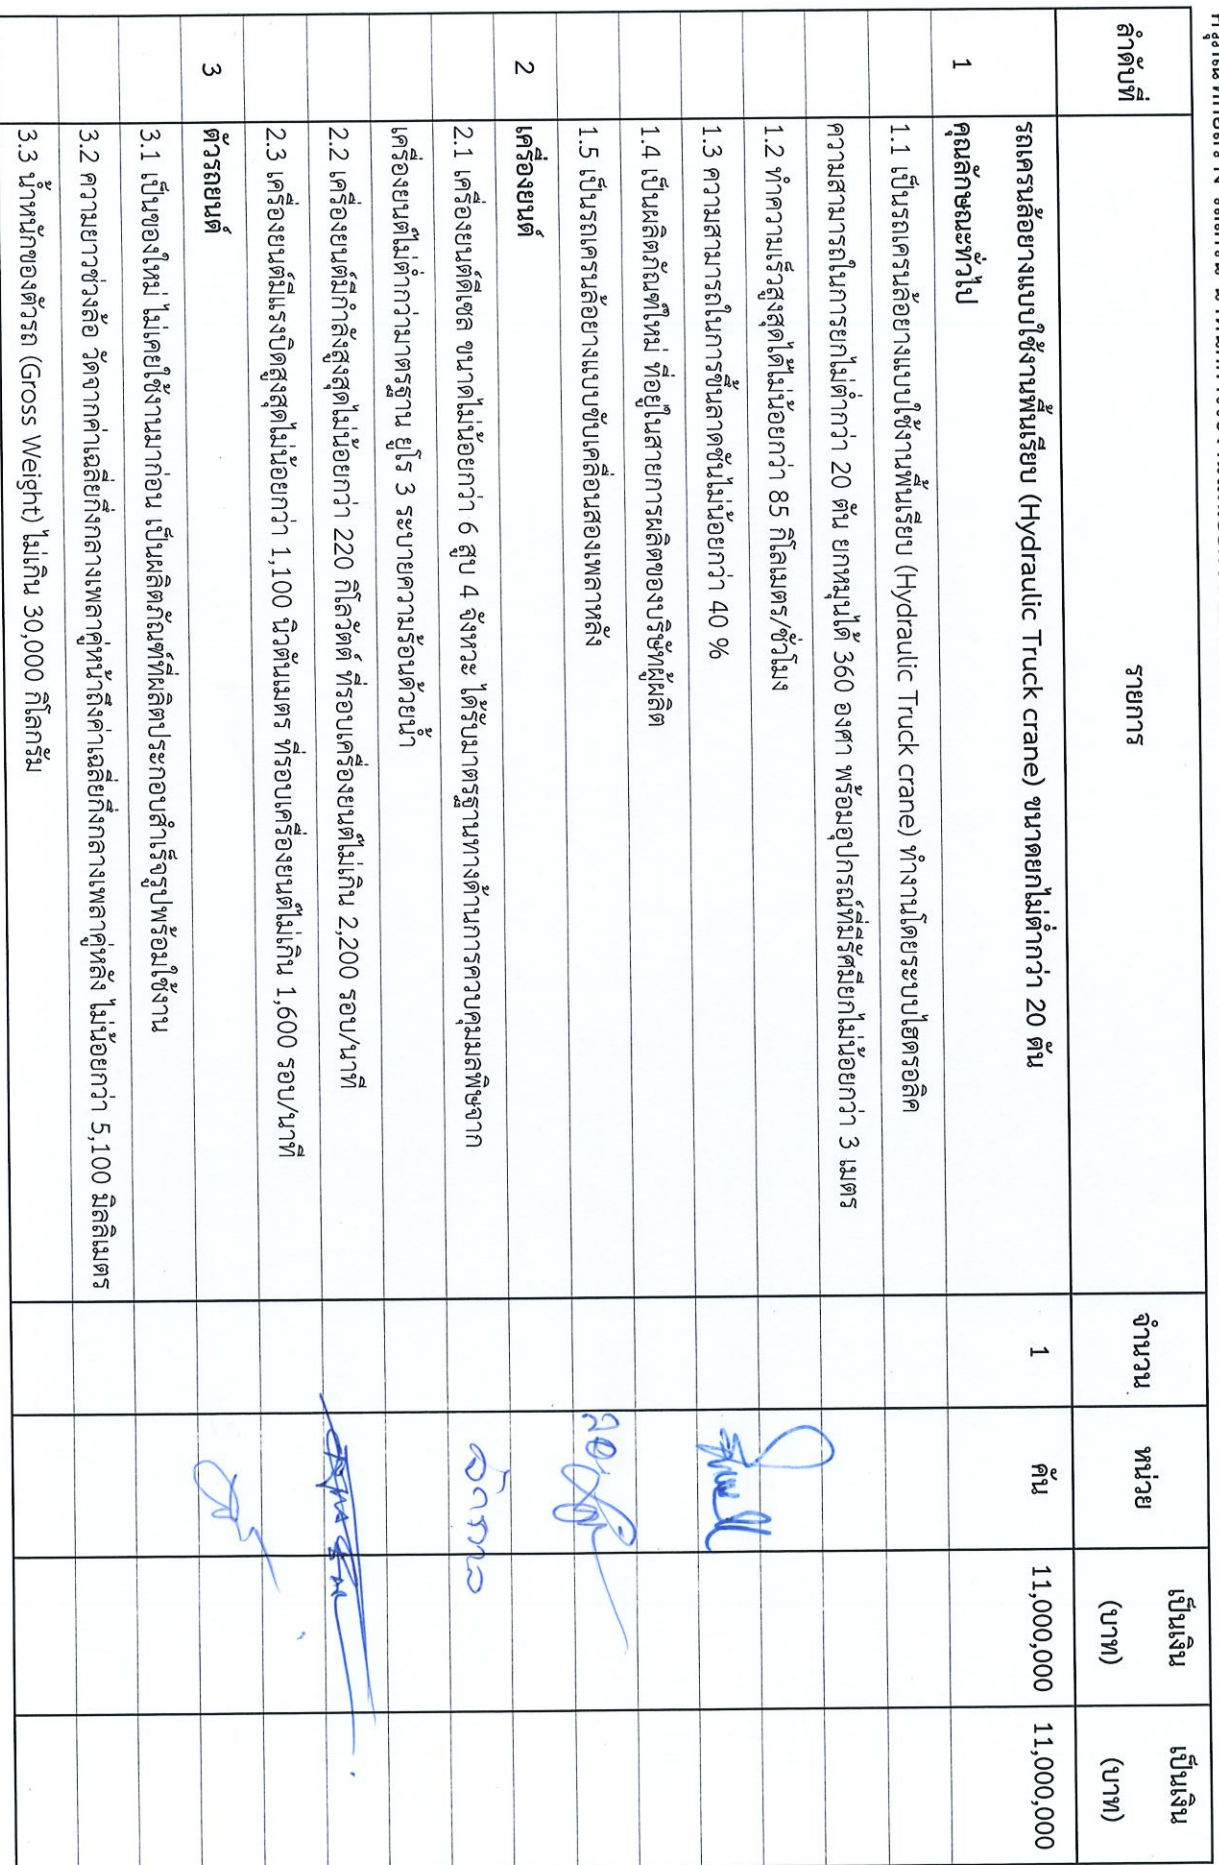 ลำดับที่ รายการ จำนวน หน่วย เป็นเงิน (บาท) เป็นเงิน (บาท)
รถเครนล้อยางแบบใช้งานพื้นเรียบ (Hydraulic Truck crane) ขนาดยกไม่ต่ำกว่า 20 ตัน 1 คัน 11,000,000 11,000,000
1 คุณลักษณะทั่วไป
1.1 เป็นรถเครนล้อยางแบบใช้งานพื้นเรียบ (Hydraulic Truck crane) ทำงานโดยระบบไฮดรอลิค
ความสามารถในการยกไม่ต่ำกว่า 20 ตัน ยกหมุนได้ 360 องศา พร้อมอุปกรณ์ที่มีรัศมียกไม่น้อยกว่า 3 เมตร
1.2 ทำความเร็วสูงสุดได้ไม่น้อยกว่า 85 กิโลเมตร/ชั่วโมง
1.3 ความสามารถในการขึ้นลาดชันไม่น้อยกว่า 40 %
1.4 เป็นผลิตภัณฑ์ใหม่ ที่อยู่ในสายการผลิตของบริษัทผู้ผลิต
1.5 เป็นรถเครนล้อยางแบบขับเคลื่อนสองเพลาหลัง
2 เครื่องยนต์
2.1 เครื่องยนต์ดีเซล ขนาดไม่น้อยกว่า 6 สูบ 4 จังหวะ ได้รับมาตรฐานทางด้านการควบคุมมลพิษจาก
เครื่องยนต์ไม่ต่ำกว่ามาตรฐาน ยูโร 3 ระบายความร้อนด้วยน้ำ
2.2 เครื่องยนต์มีกำลังสูงสุดไม่น้อยกว่า 220 กิโลวัตต์ ที่รอบเครื่องยนต์ไม่เกิน 2,200 รอบ/นาที
2.3 เครื่องยนต์มีแรงบิดสูงสุดไม่น้อยกว่า 1,100 นิวตันเมตร ที่รอบเครื่องยนต์ไม่เกิน 1,600 รอบ/นาที
3 ตัวรถยนต์
3.1 เป็นของใหม่ ไม่เคยใช้งานมาก่อน เป็นผลิตภัณฑ์ที่ผลิตประกอบสำเร็จรูปพร้อมใช้งาน
3.2 ความยาวช่วงล้อ วัดจากค่าเฉลี่ยกึ่งกลางเพลาคู่หน้าถึงค่าเฉลี่ยกึ่งกลางเพลาคู่หลัง ไม่น้อยกว่า 5,100 มิลลิเมตร
3.3 น้ำหนักของตัวรถ (Gross Weight) ไม่เกิน 30,000 กิโลกรัม